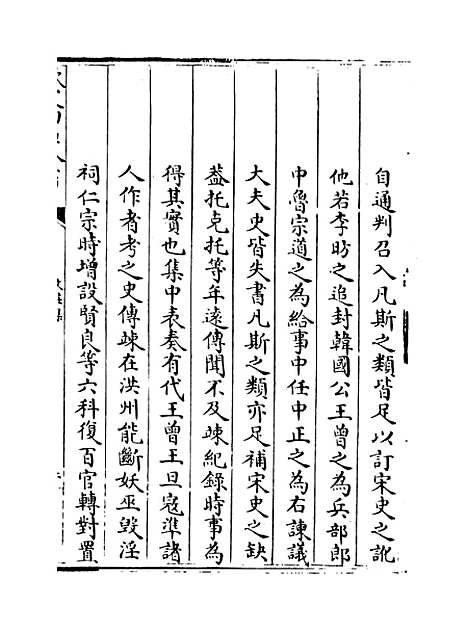 自通判召入凡斯之類皆足以訂宋史之訛
他若李昉之追封韓國公王曾之為兵部郎
中魯宗道之為給事中任中正之為右諫議
大夫史皆失書凡斯之類亦足補宋史之缺
葢托克托等年逺傳聞不及竦紀錄時事為
得其實也集中表奏有代王曾王旦宼準諸
人作者考之史傳竦在洪州能斷妖巫毁淫
祠仁宗時增設賢良等六科復百官轉對置